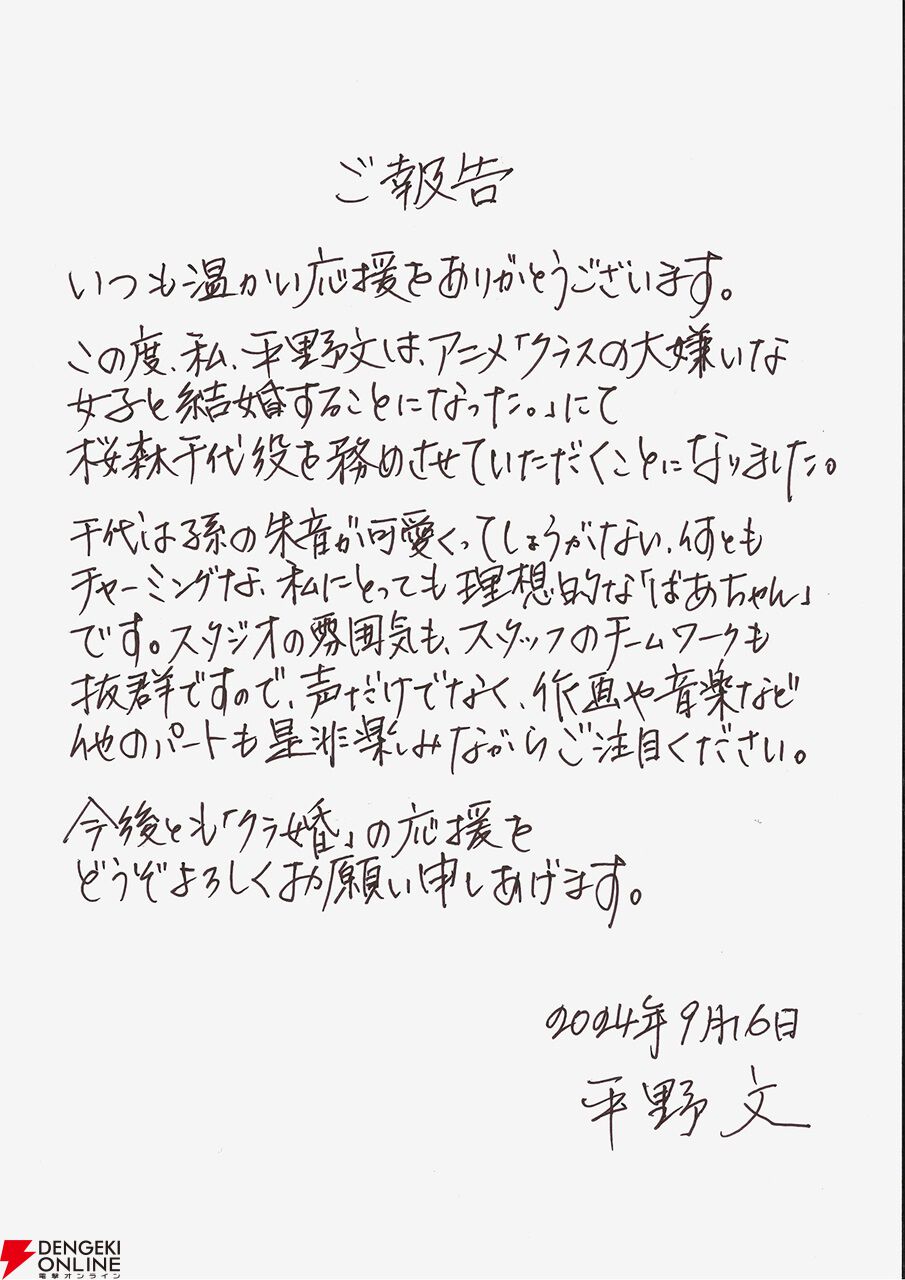 ご報告
いつも温かい応援をありがとうございます。
この度、私、平野文は、アニメ「クラスの大嫌いな
女子と結婚することになった。」にて
桜森千代役を務めさせていただくことになりました。
千代は孫の朱音が可愛くってしょうがない、何とも
チャーミングな、私にとっても理想的な「ばあちゃん」
です。スタジオの雰囲気も、スタッフのチームワークも
抜群ですので、声だけでなく、作画や音楽など
他のパートも是非楽しみながらご注目ください。
今後とも「クラ婚」の応援を
どうぞよろしくお願い申しあげます。
2024年9月16日
平野文
DENGEKI
ONLINE
電撃オンライン